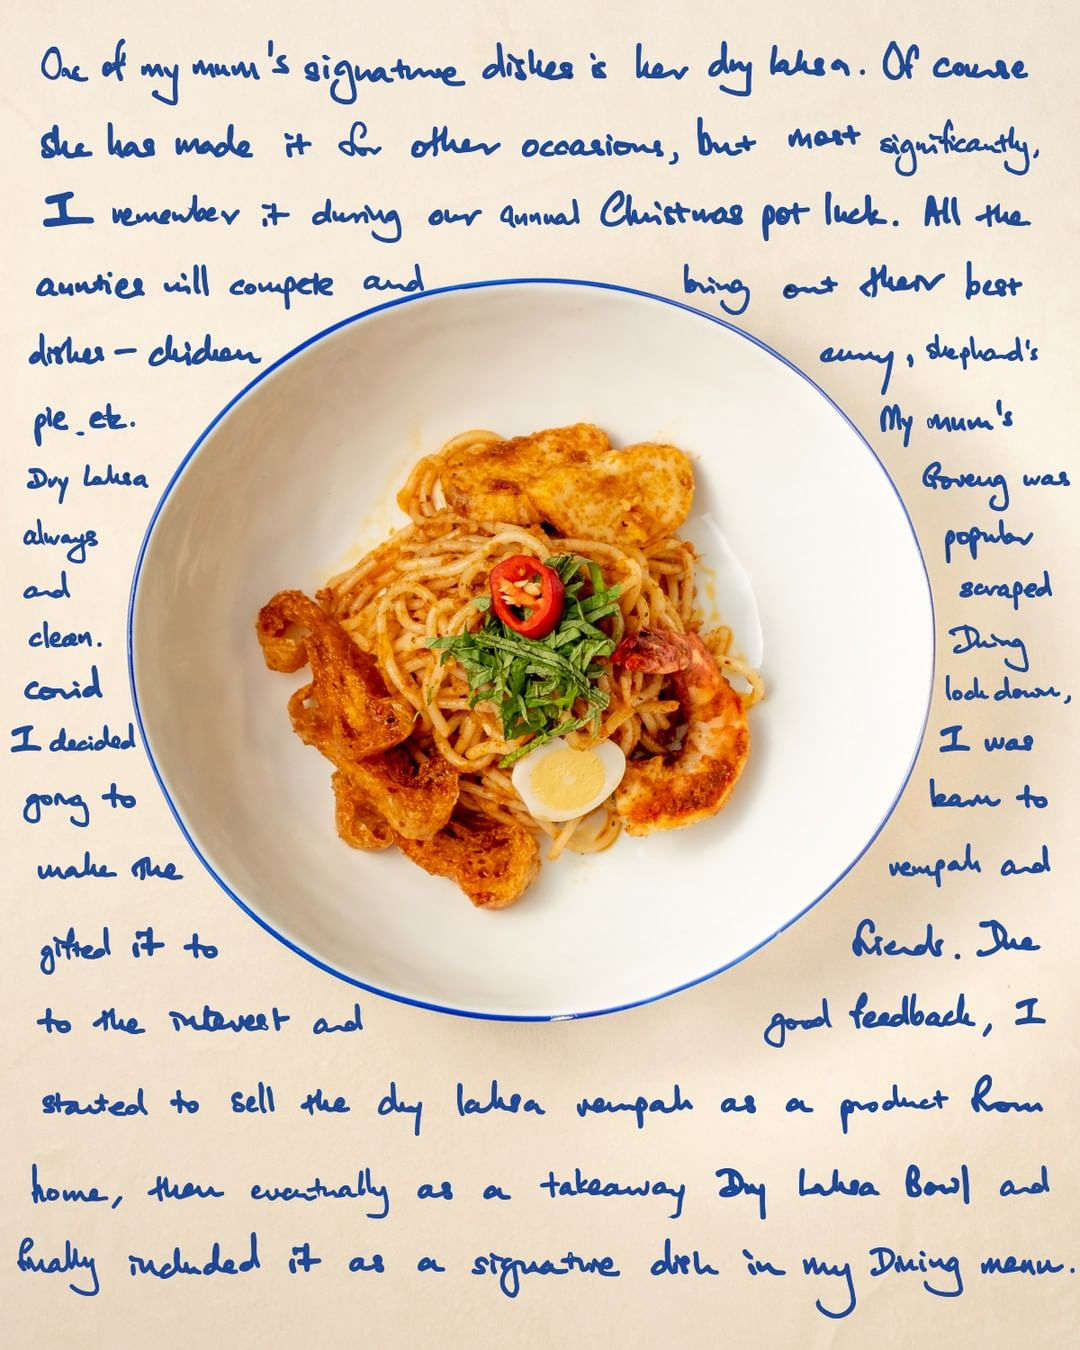 One of my mum's signature dishes is her dry laksa. Of course
she has made it for other occasions, but most significantly,
I remember it during our annual Christmas pot luck. All the
aunties will compete and bring out their best
dishes - chicken curry, shephard's
pie etc. My mum's
Dry Laksa Goreng was
always popular
and scraped
clean. During
covid lockdown,
I decided I was
going to learn to
make the rempah and
gifted it to friends. Due
to the interest and good feedback, I
started to sell the dry laksa rempah as a product from
home, then eventually as a takeaway Dry Laksa Bowl and
finally included it as a signature dish in my Dining menu.